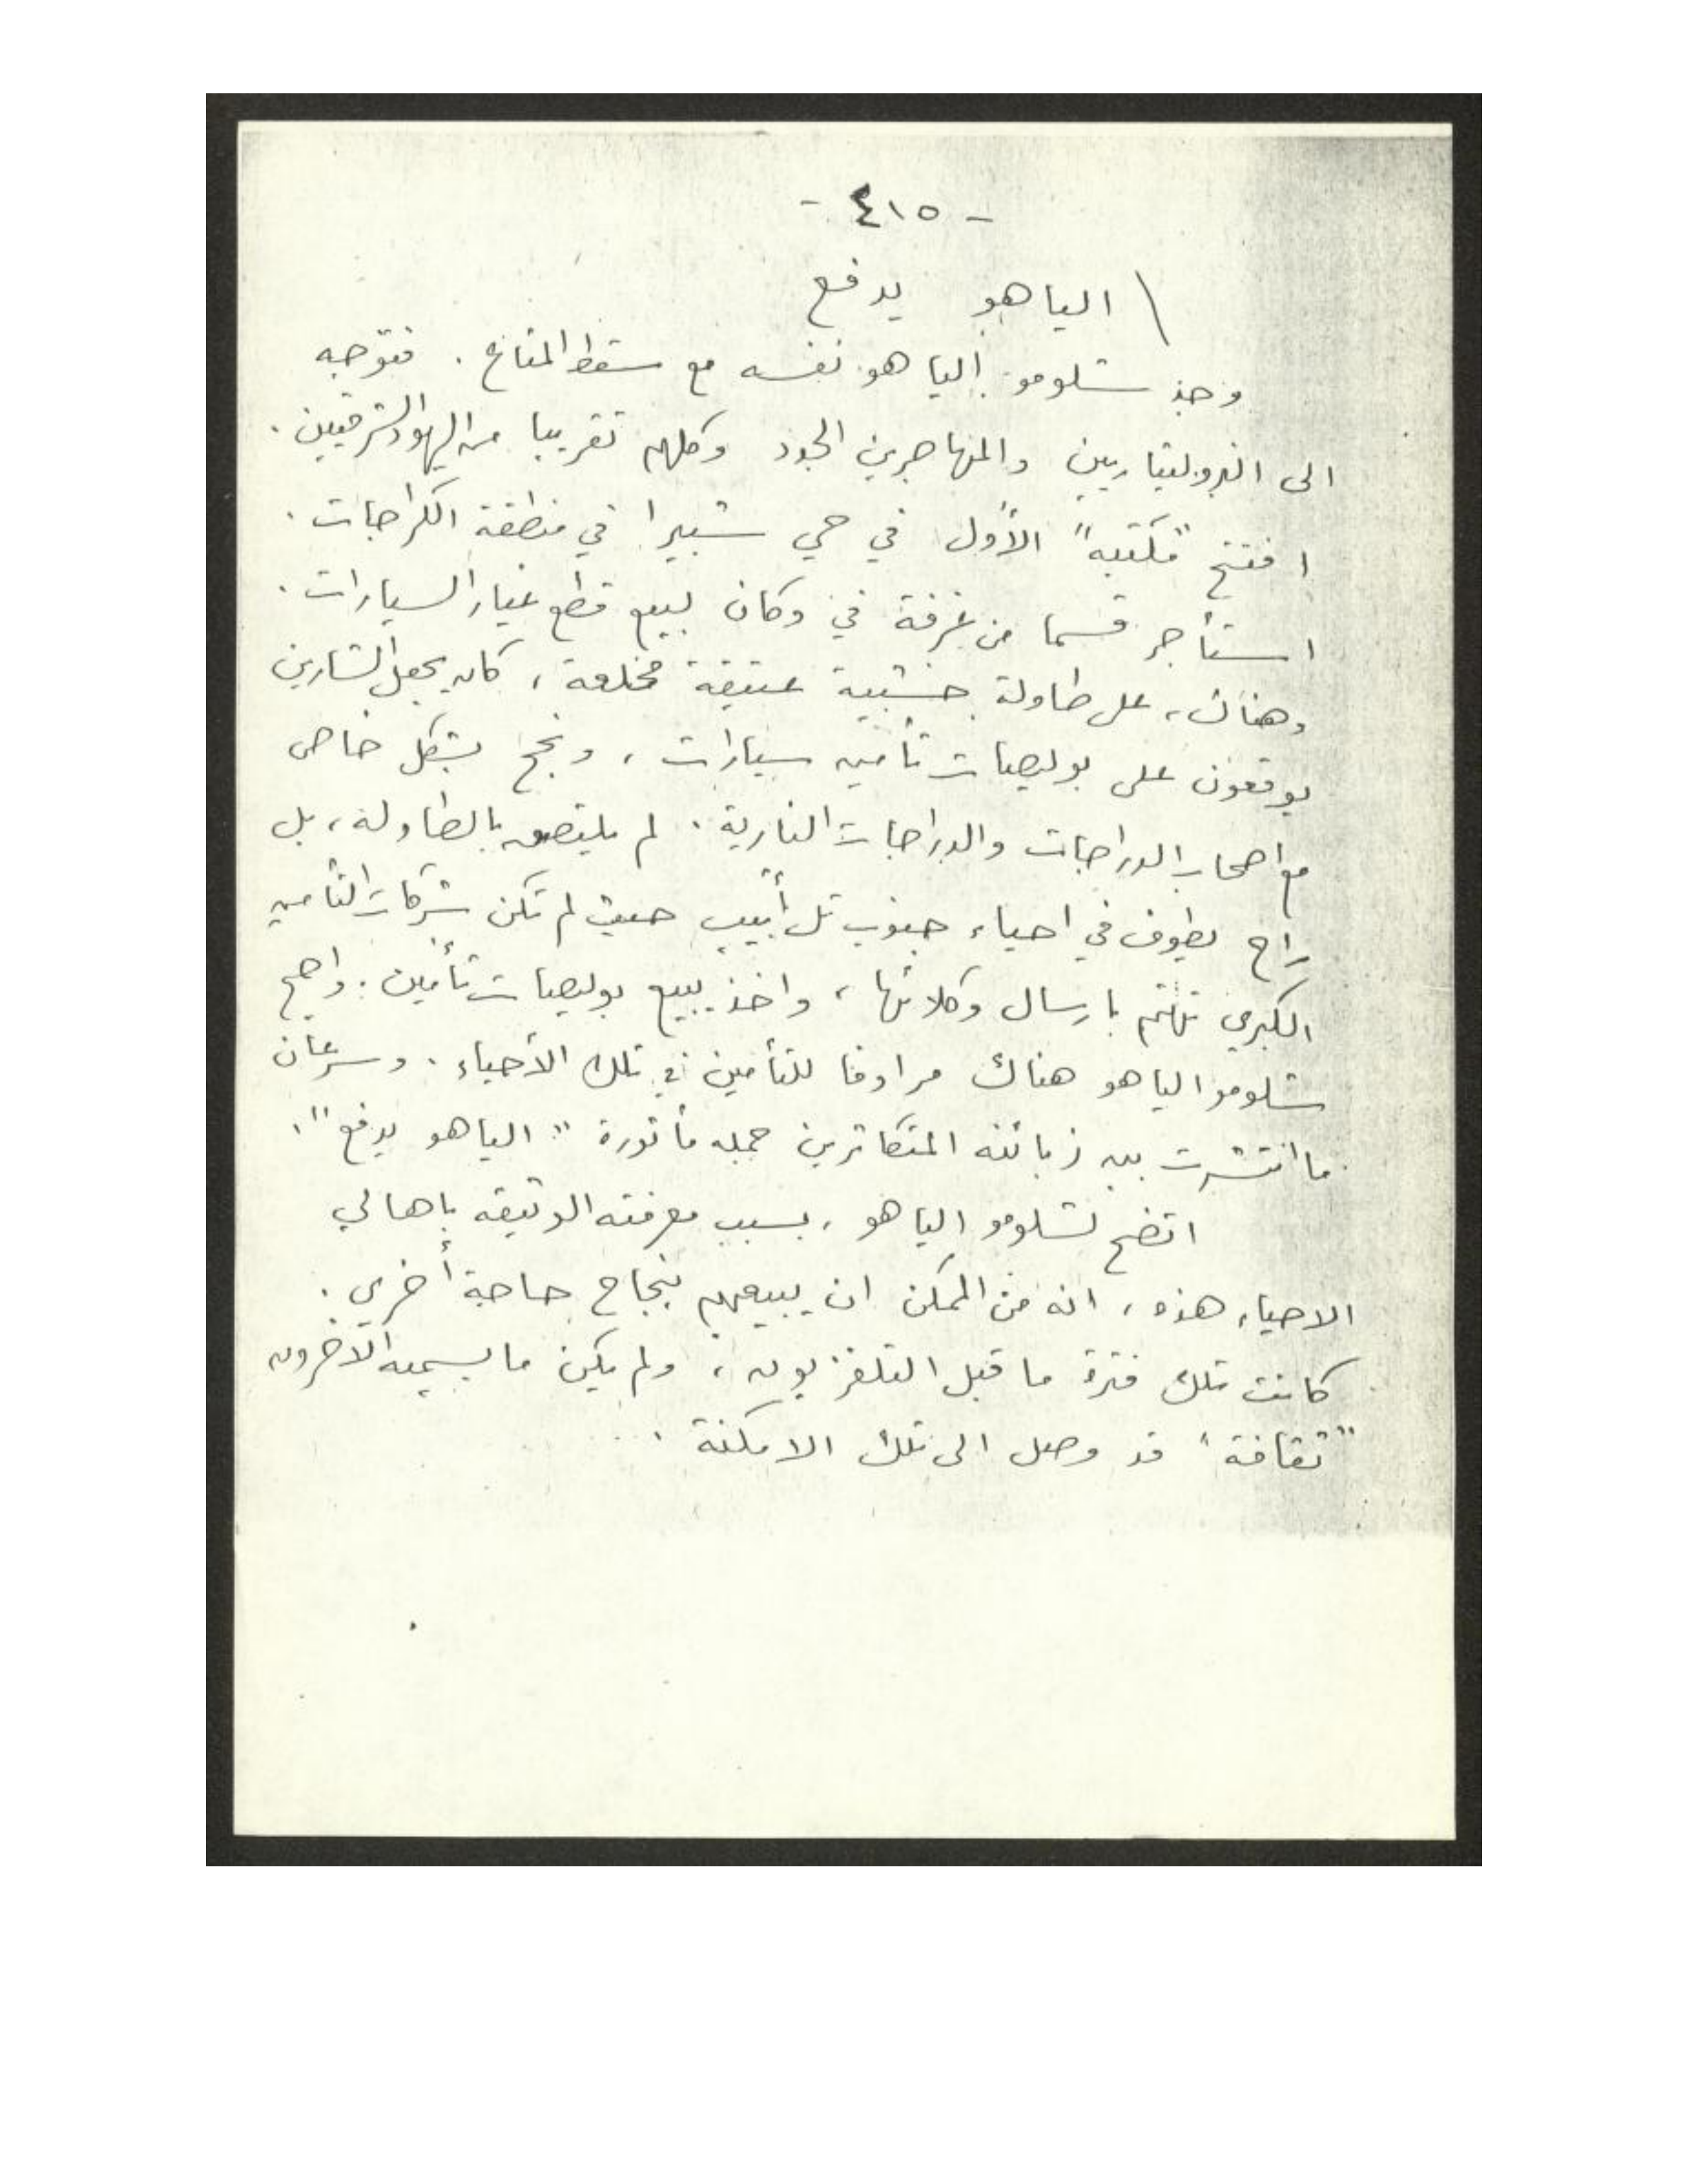 - ٤١٥ -
الياهو يدفع
وجد شلومو الياهو نفسه مع سقط المتاع . فتوجه
الى البروليتاريين والمهاجرين الجدد وكلهم تقريبا من اليهود الشرقيين .
افتتح "مكتبه" الأول في حي شبيرا في منطقة الكراجات .
استأجر قسما من غرفة في دكان لبيع قطع غيار السيارات .
وهناك ، على طاولة خشبية عتيقة مخلعة ، كان يجعل الشارين
يوقعون على بوليصات تأمين سيارات ، ونجح بشكل خاص
مع اصحاب الدراجات والدراجات النارية . لم يلتصق بالطاولة ، بل
راح يطوف في احياء جنوب تل أبيب حيث لم تكن شركات التأمين
الكبرى تهتم بارسال وكلائها ، واخذ يبيع بوليصات تأمين . واصبح
شلومو الياهو هناك مرادفا للتأمين في تلك الأحياء . وسرعان
ما انتشرت بين زبائنه المتكاثرين جمله مأثورة " الياهو يدفع " .
اتضح لشلومو الياهو ، بسبب معرفته الوثيقه باهالي
الاحياء هذه ، انه من الممكن ان يبيعهم بنجاح حاجة أخرى .
كانت تلك فترة ما قبل التلفزيون ، ولم يكن ما يسميه الآخرون
"ثقافة" قد وصل الى تلك الامكنة .